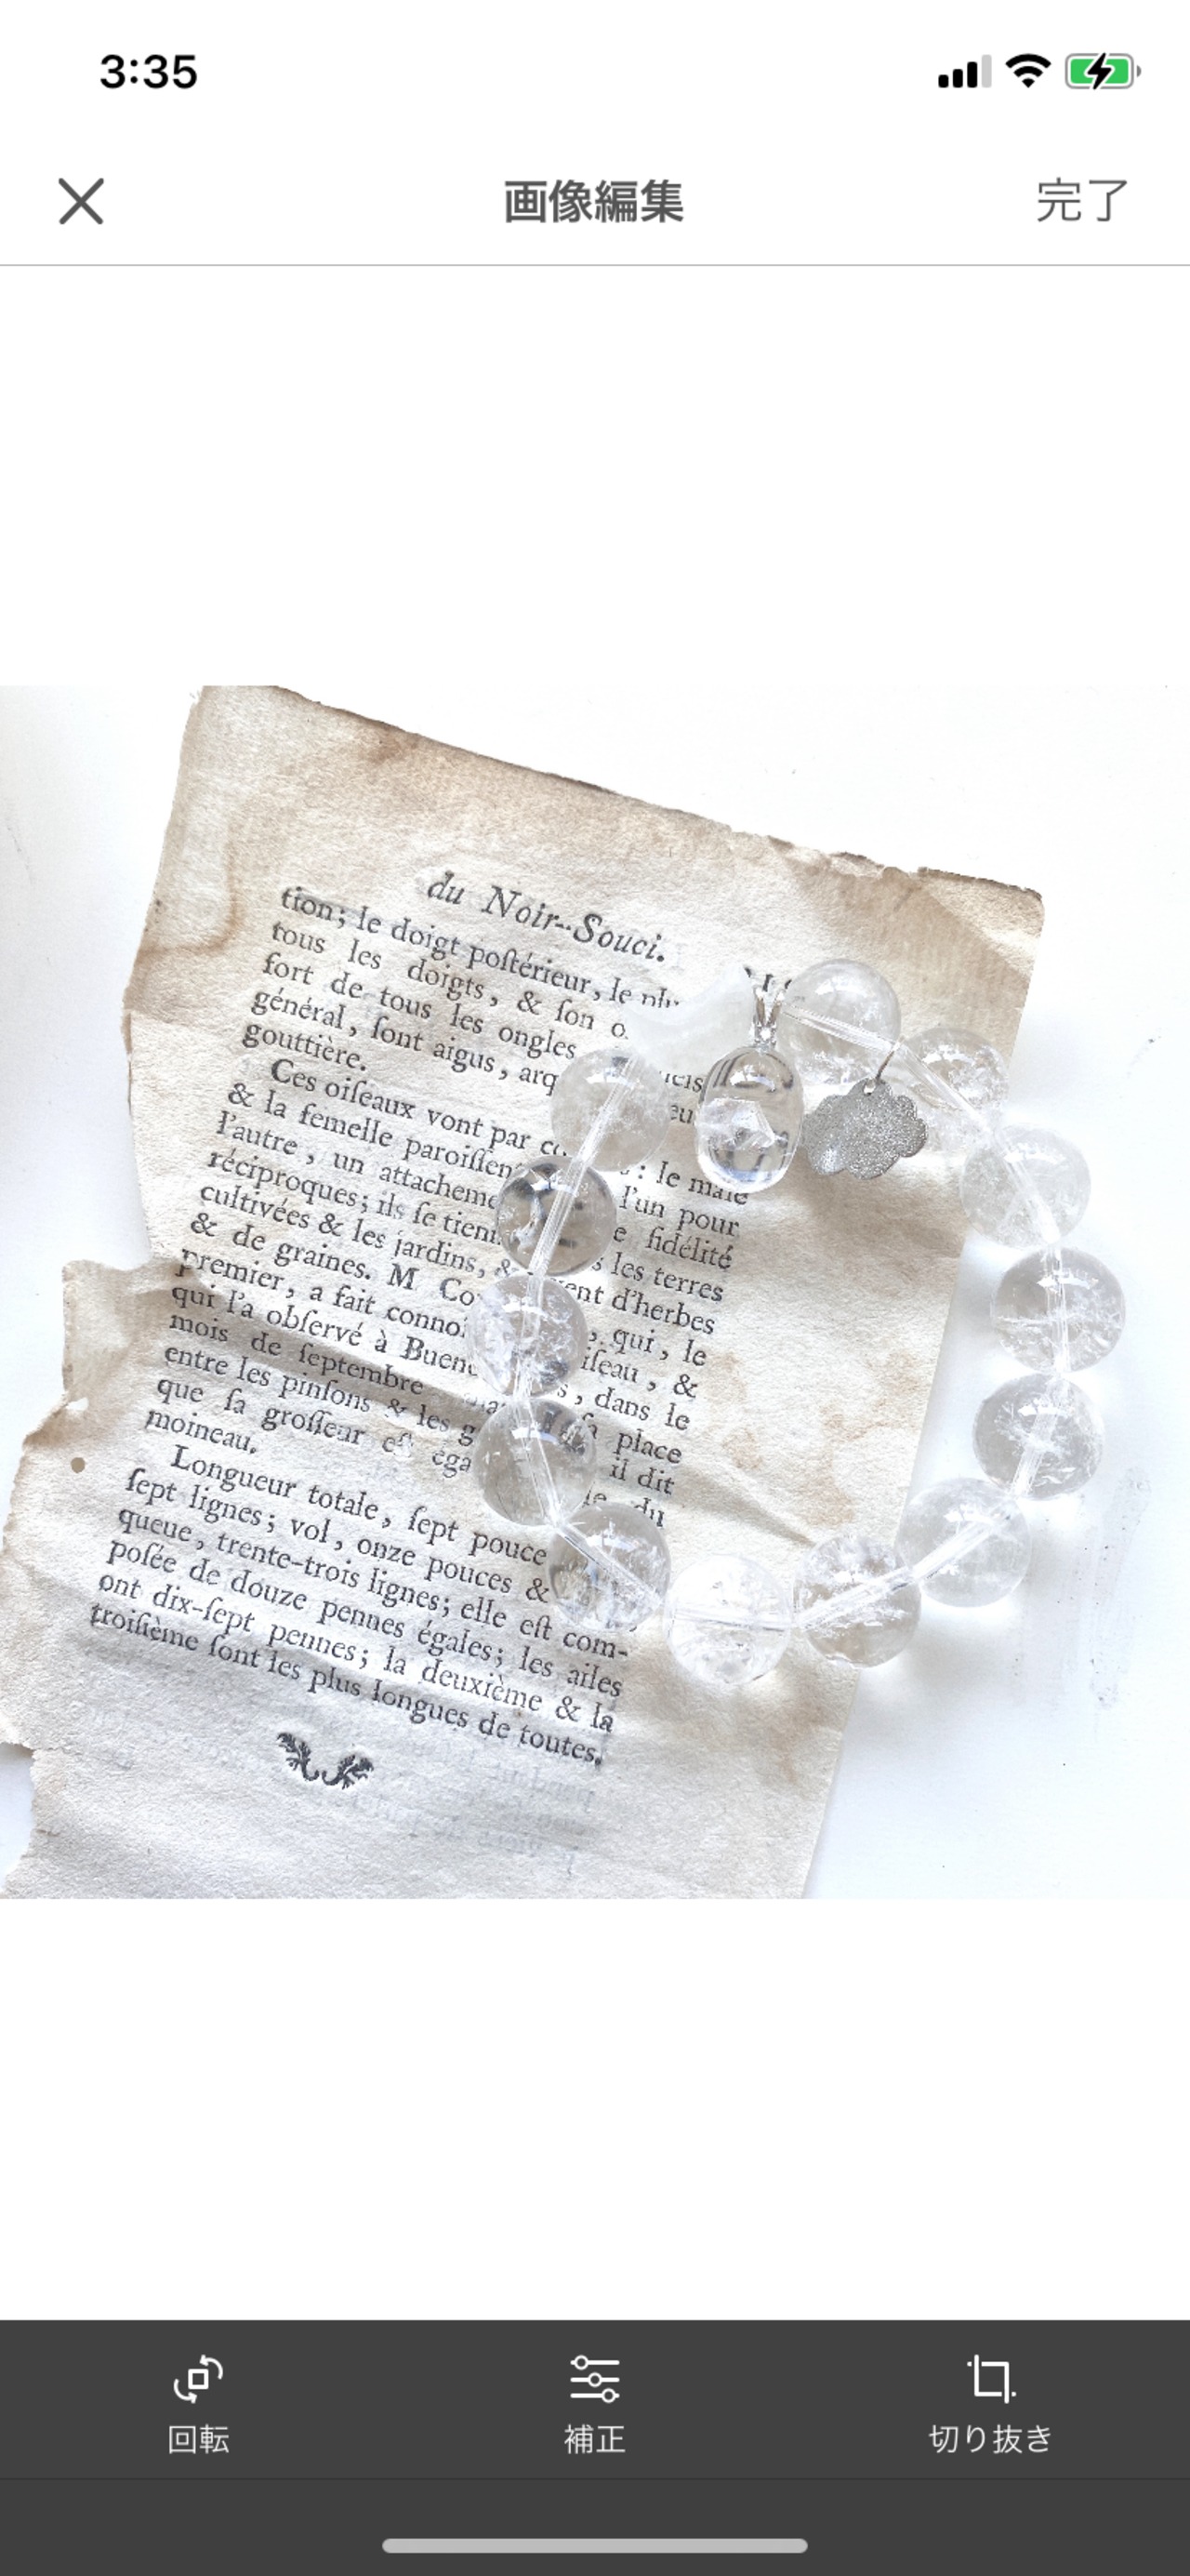 3:35
画像編集
完了
du Noir-Souci.
tion; le doigt poſtérieur, le
tous les doigts, & ſon
fort de tous les ongles
général, ſont aigus,
gouttière.
Ces oiſeaux vont par : le male
& la femelle l'un pour
l'autre, un fidélité
réciproques; ils ſe les terres
cultivées & les jardins, d'herbes
& de graines. M , qui, le
premier, a fait &
qui l'a obſervé à , dans le
mois de ſeptembre place
entre les pinſons & les il dit
que ſa groſſeur eſt du
moineau.
Longueur totale, ſept pouce
ſept lignes; vol, onze pouces &
queue, trente-trois lignes; elle eſt com-
poſée de douze pennes égales; les ailes
ont dix-ſept pennes; la deuxième & la
troiſième ſont les plus longues de toutes.
回転
補正
切り抜き